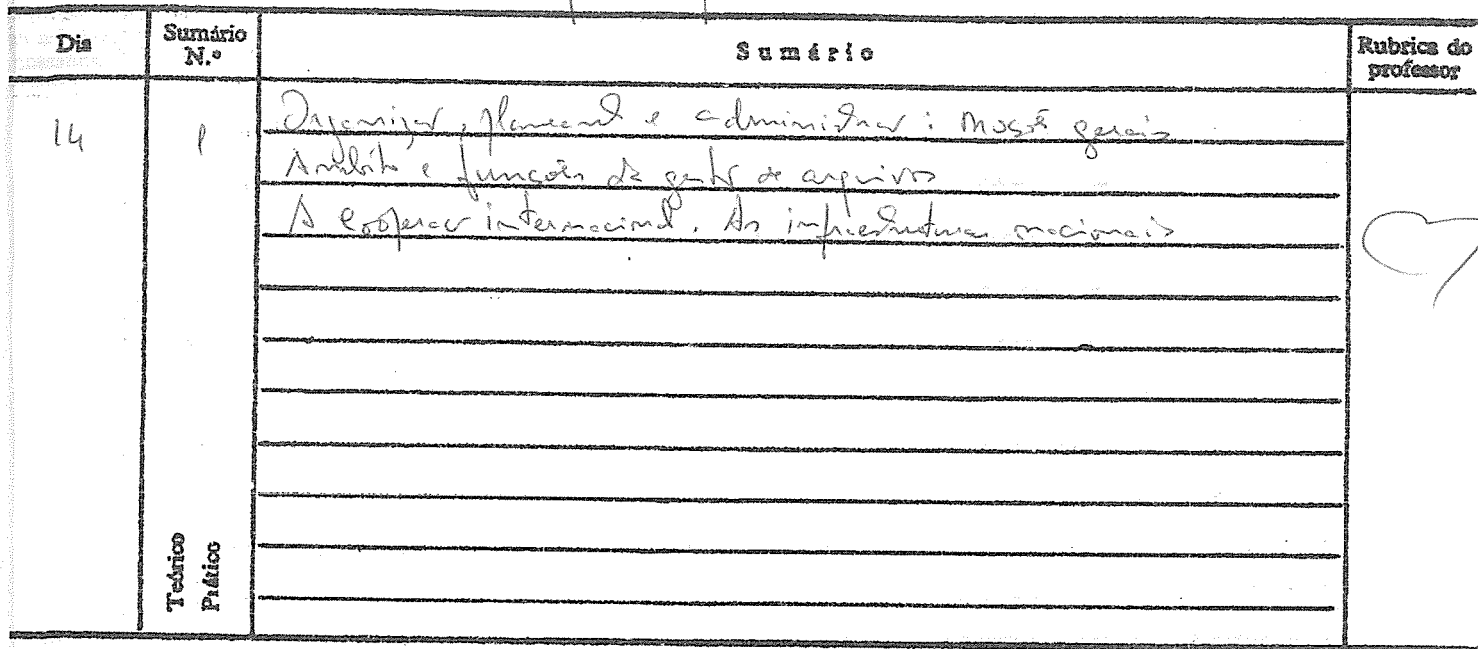 Dia
Sumário N.º
Sumário
Rubrica do professor
14
1
Organizar, planear e administrar: noções gerais
Âmbito e funções da gestão de arquivos
A cooperação internacional. As infraestruturas nacionais
Teórico
Prático